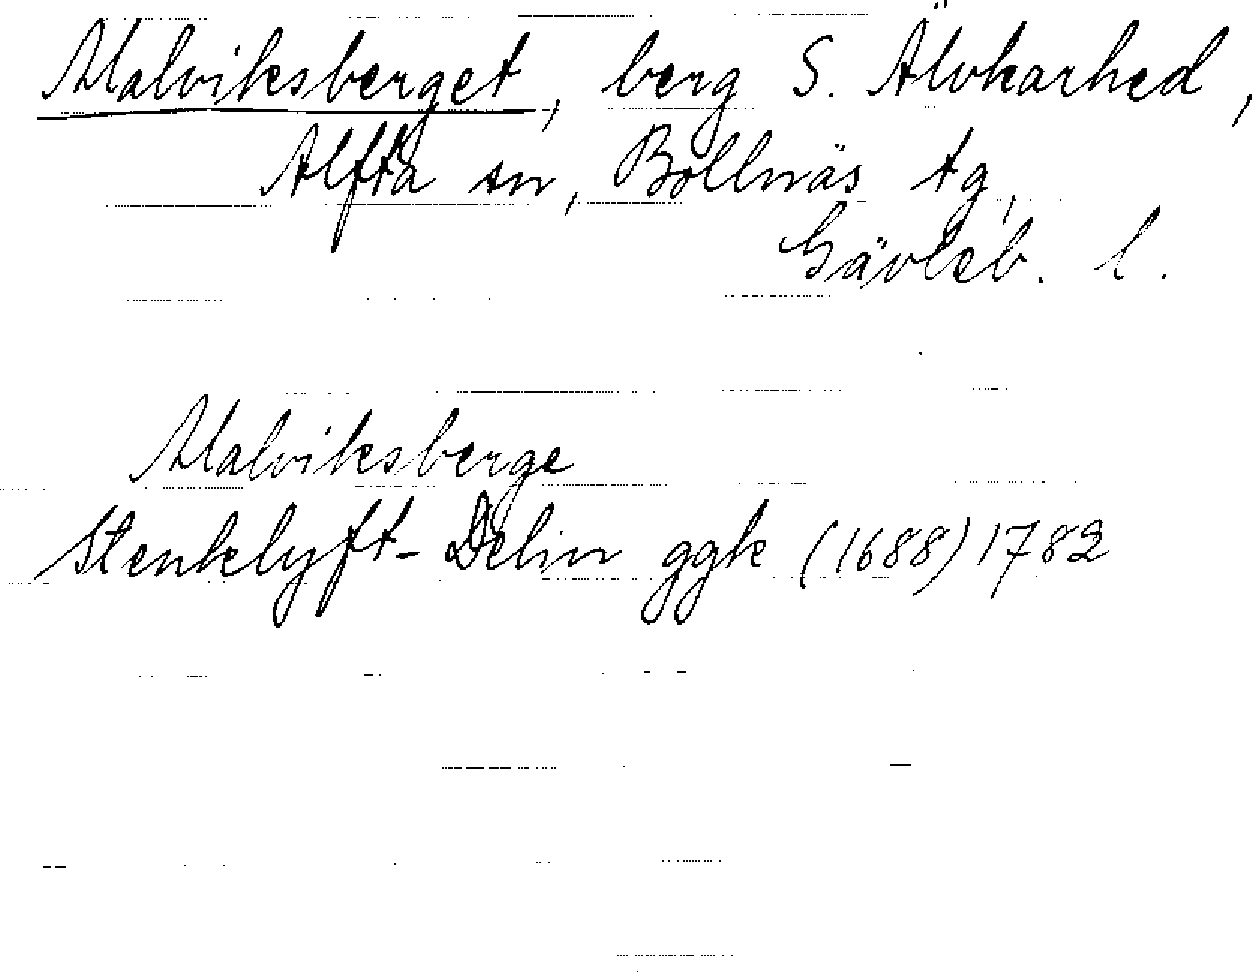 Malviksberget, berg S. Älvkarhed,
Alfta sn, Bollnäs tg,
Gävleb. l.
Malviksberge
Stenklyft- Delin ggk (1688) 1782